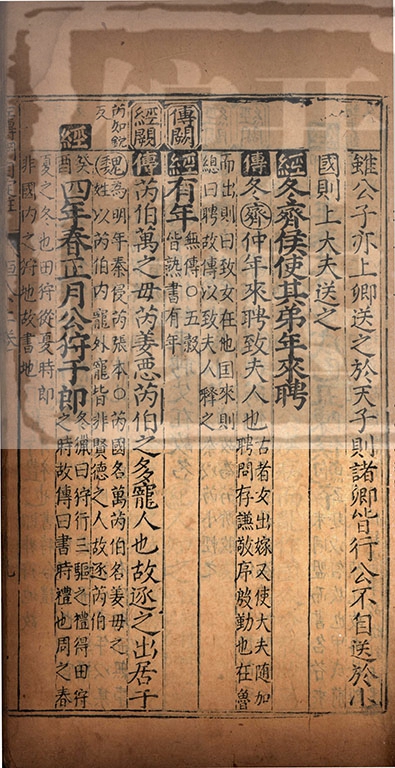 雖公子亦上卿送之於天子則諸卿皆行公不自送於小
國則上大夫送之
經冬齊侯使其弟年來聘
傳冬齊仲年來聘致夫人也
古者女出嫁又使大夫隨加
聘問存謙敬序殷勤也在魯
而出則曰致女在他囯來則
總曰聘故傳以致夫人釋之
傳闕
經有年
無傳○五穀
皆熟書有年
經闕
傳芮伯萬之母芮姜惡芮伯之多寵人也故逐之出居于
芮如銳
反
魏
為明年秦侵芮張本○芮國名萬芮伯名姜母之
姓以芮伯内寵外寵皆非賢德之人故逐芮伯
經
癸
酉
四年春正月公狩于郎
冬獵曰狩行三驅之禮得田狩
之時故傳曰書時禮也周之春
夏之冬也田狩從夏時郎
非國内之狩地故書地